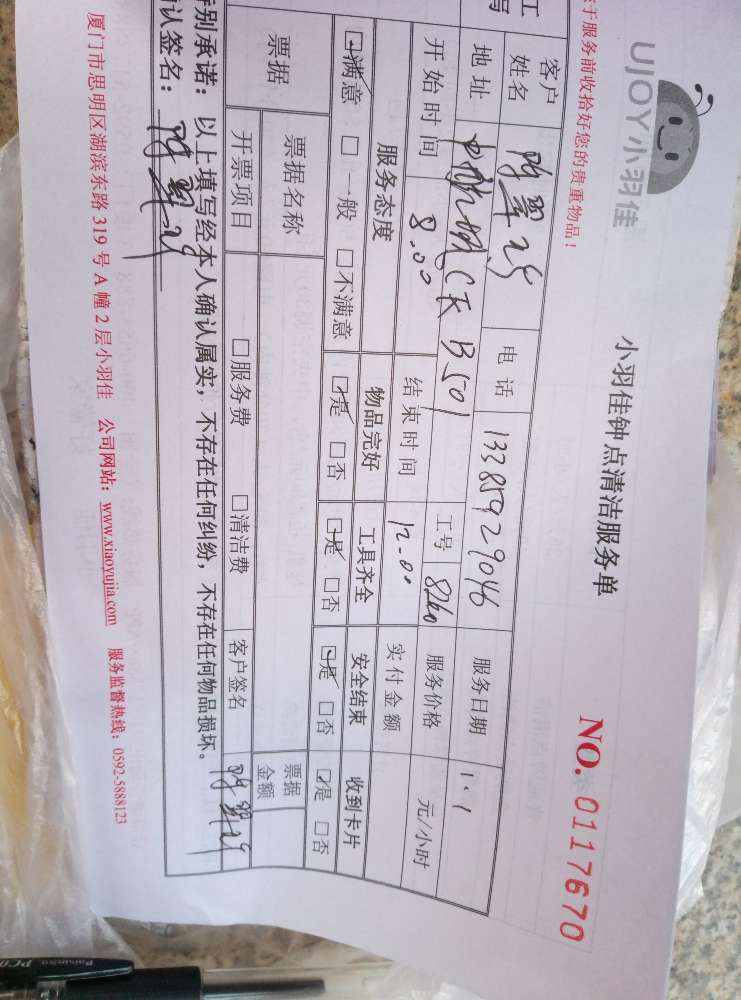 UJOY小羽佳
小羽佳钟点清洁服务单
NO. 0117670
于服务前收拾好您的贵重物品！
工
客户姓名 电话 13385929046 服务日期 1.1
地址 C区 B501 工号 服务价格 元/小时
开始时间 8.00 结束时间 12.00 实付金额
服务态度 物品完好 工具齐全 安全结束 收到卡片
☑满意 □一般 □不满意 ☑是 □否 ☑是 □否 ☑是 □否 ☑是 □否
票据 票据名称 票据金额
开票项目 □服务费 □清洁费 客户签名
特别承诺：以上填写经本人确认属实，不存在任何纠纷，不存在任何物品损坏。
确认签名：
厦门市思明区湖滨东路 319 号 A 幢 2 层小羽佳 公司网站：www.xiaoyujia.com 服务监督热线：0592-5888123